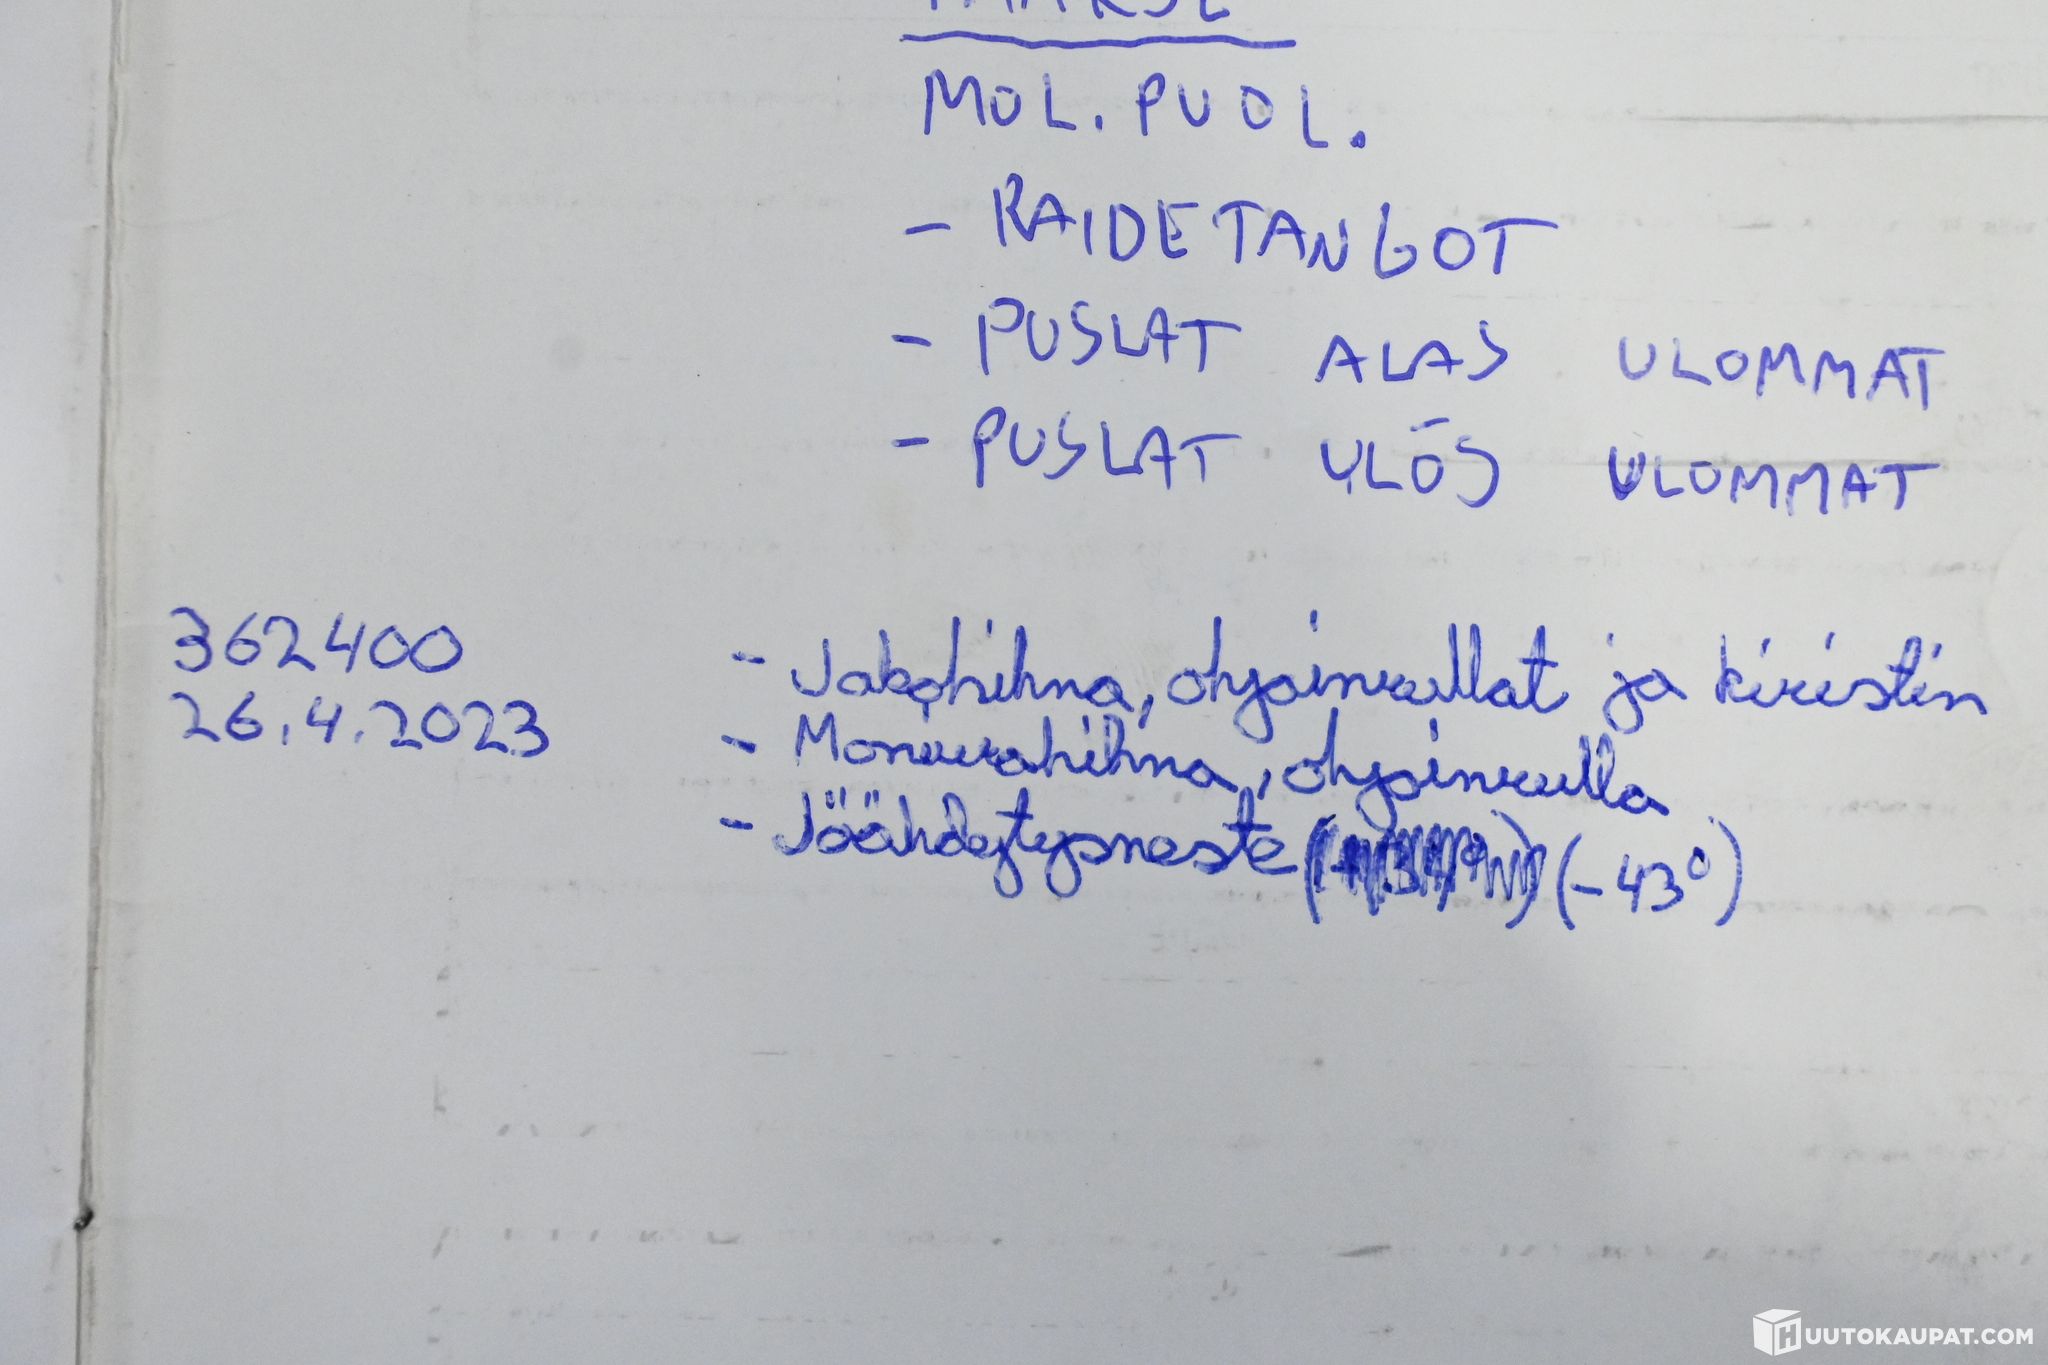 MOL. PUOL.
- RAIDETANGOT
- PUSLAT ALAS ULOMMAT
- PUSLAT YLÖS ULOMMAT
362400 - Jakohihna, ohjainrullat ja kiristin
26.4.2023 - Moniurahihna, ohjainrulla
- Jäähdytysneste (-43°)
HUUTOKAUPAT.COM